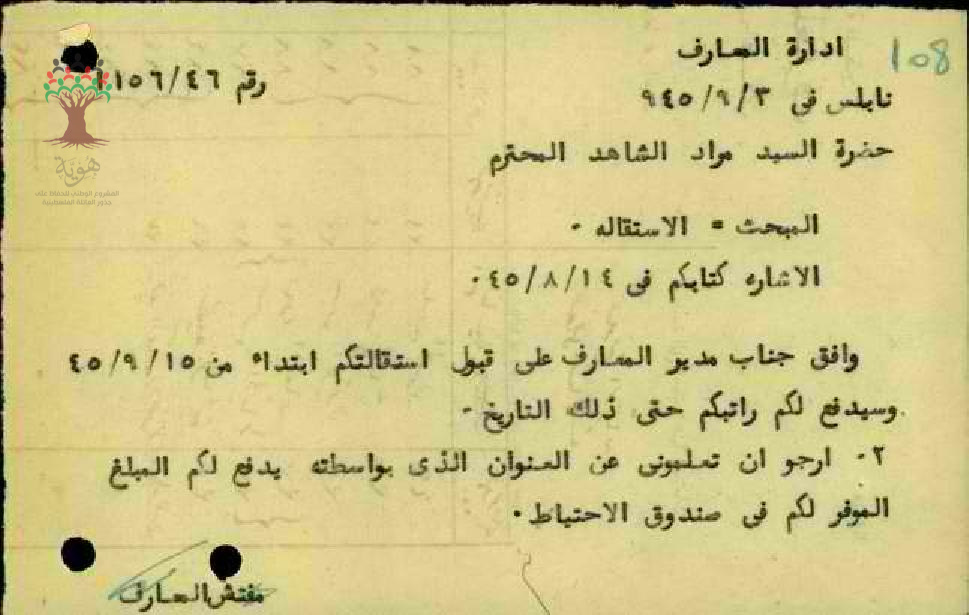 108
ادارة المعارف
رقم ١١٥٦/٤٦
نابلس فى ٩٤٥/٩/٣
حضرة السيد مراد الشاهد المحترم
المبحث = الاستقاله ٠
الاشاره كتابكم فى ٤٥/٨/١٤٠
وافق جناب مدير المعارف على قبول استقالتكم ابتداء من ٤٥/٩/١٥
وسيدفع لكم راتبكم حتى ذلك التاريخ ٠
٢٠ ارجو ان تعلمونى عن العنوان الذى بواسطته يدفع لكم المبلغ
الموفر لكم فى صندوق الاحتياط ٠
مفتش المعارف
هوية
المشروع الوطني للحفاظ على
جذور العائلة الفلسطينية